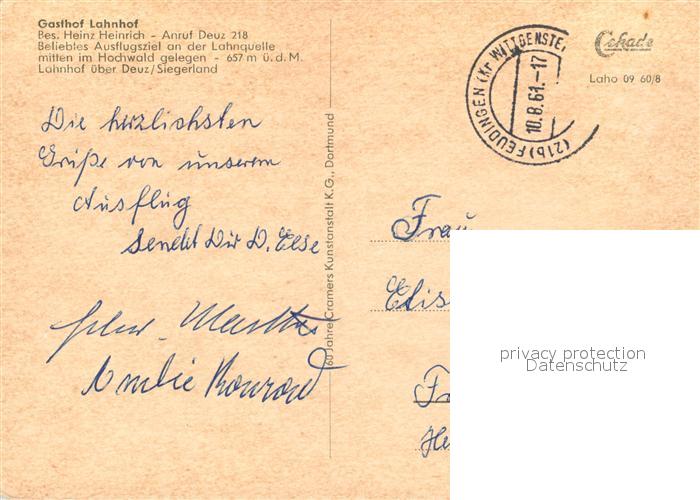 Gasthof Lahnhof
Bes. Heinz Heinrich - Anruf Deuz 218
Beliebtes Ausflugsziel an der Lahnquelle
mitten im Hochwald gelegen - 657 m ü.d.M.
Lahnhof über Deuz/Siegerland
Die herzlichsten
Grüße von unserem
Ausflug
sendet Dir D. Else
Amelie Konrad
60 Jahre Cramers Kunstanstalt K.G., Dortmund
(21b) FEUDINGEN (Kr WITTGENSTE
10.8.61.-17
Schade
Laho 09 60/8
Frau
Elis
Fr
He
privacy protection
Datenschutz